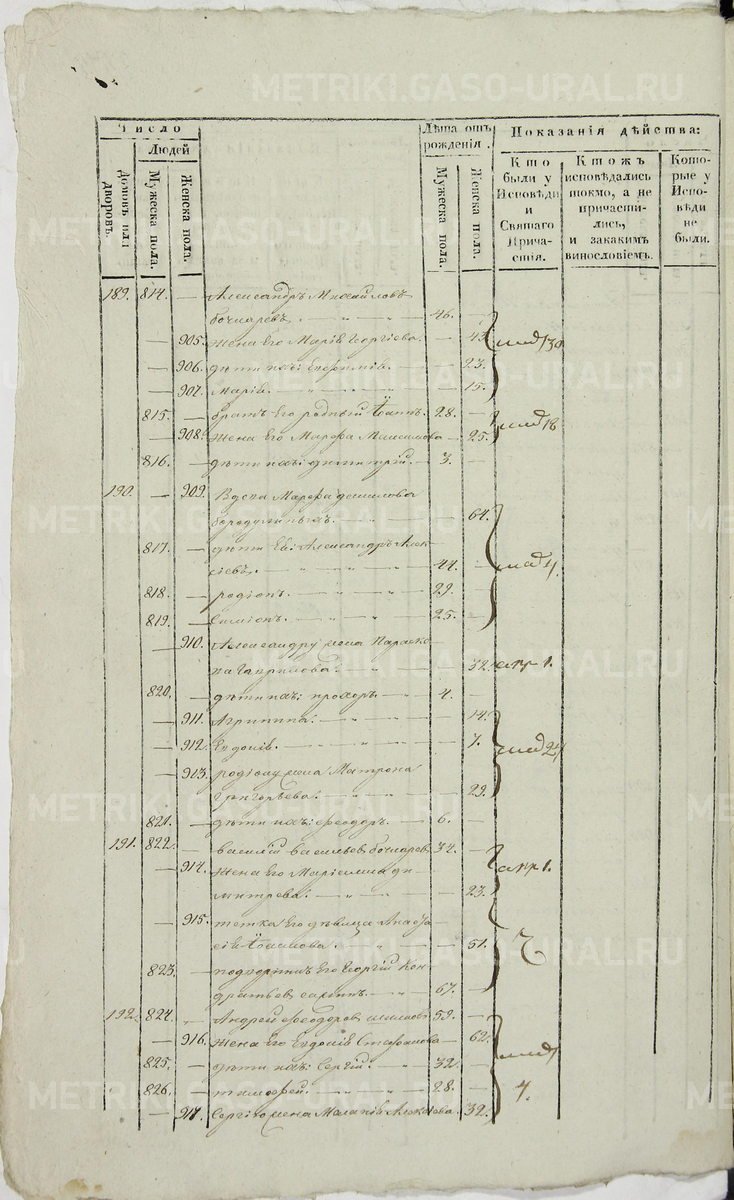 METRIKI.GASO-URAL.RU
Число
Людей
Домовъ или дворовъ.
Мужеска пола.
Женска пола.
Лѣта отъ рожденія.
Мужеска пола.
Женска пола.
Показанія дѣйства:
Кто были у Исповѣди и Святаго Причастія.
Ктожъ исповѣдались токмо, а не причастились, и закакимъ винословіемъ.
Которые у Исповѣди не были.
189. 814. — Александръ Михайловъ
бочкаревъ. 46. —
— 905. жена Его Марія Георгіева. — 43.
— 906. дѣти ихъ: Евфимія. — 23.
— 907. Марія. — 15.
815. — братъ Его родный Іоаннъ. 28. —
— 908. жена Его Марфа Максимова — 25.
816. — дѣти ихъ: димитрій. 3. —
190. — 909. Вдова Марфа
— 64.
817. — дѣти Ея: Александръ Алек
сіевъ. 44. —
818. — родіонъ. 29. —
819. — Симіонъ. 25. —
— 910. Александру жена Параске
ва Гаврилова. — 32. апр 1.
820. — дѣти ихъ: прохоръ. 4. —
— 911. Агрипина. — 14.
— 912. Евдокія. — 7.
— 913. родіону жена Матрона
Григорьева. — 29.
821. — дѣти ихъ: Феодоръ. 6. —
191. 822. — василій васильевъ бочкаревъ 34. — апр 1.
— 914. жена Его Маріамна ди
митрева. — 23.
— 915. тетка Его дѣвица Анаста
сія Іоаннова. — 51.
823. — Его Георгій Кон
дратьевъ 67. —
192. 824. — Андрей Феодоровъ 59. —
— 916. жена Его Евдокія Стефанова — 62.
825. — дѣти ихъ: Сергій. 32. —
826. — тимофей. 28. —
— 917. Сергію жена Маланія Алексіева. — 32.